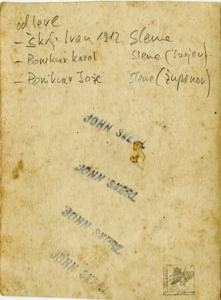 od leve
- Škrj Ivan 1912 Slema
- Ponikvar Karol Slema (Jurjev)
- Ponikvar Jože Slema (Županov)
JOHN SKERL
JOHN SKERL
JOHN SKERL
JOHN SKERL